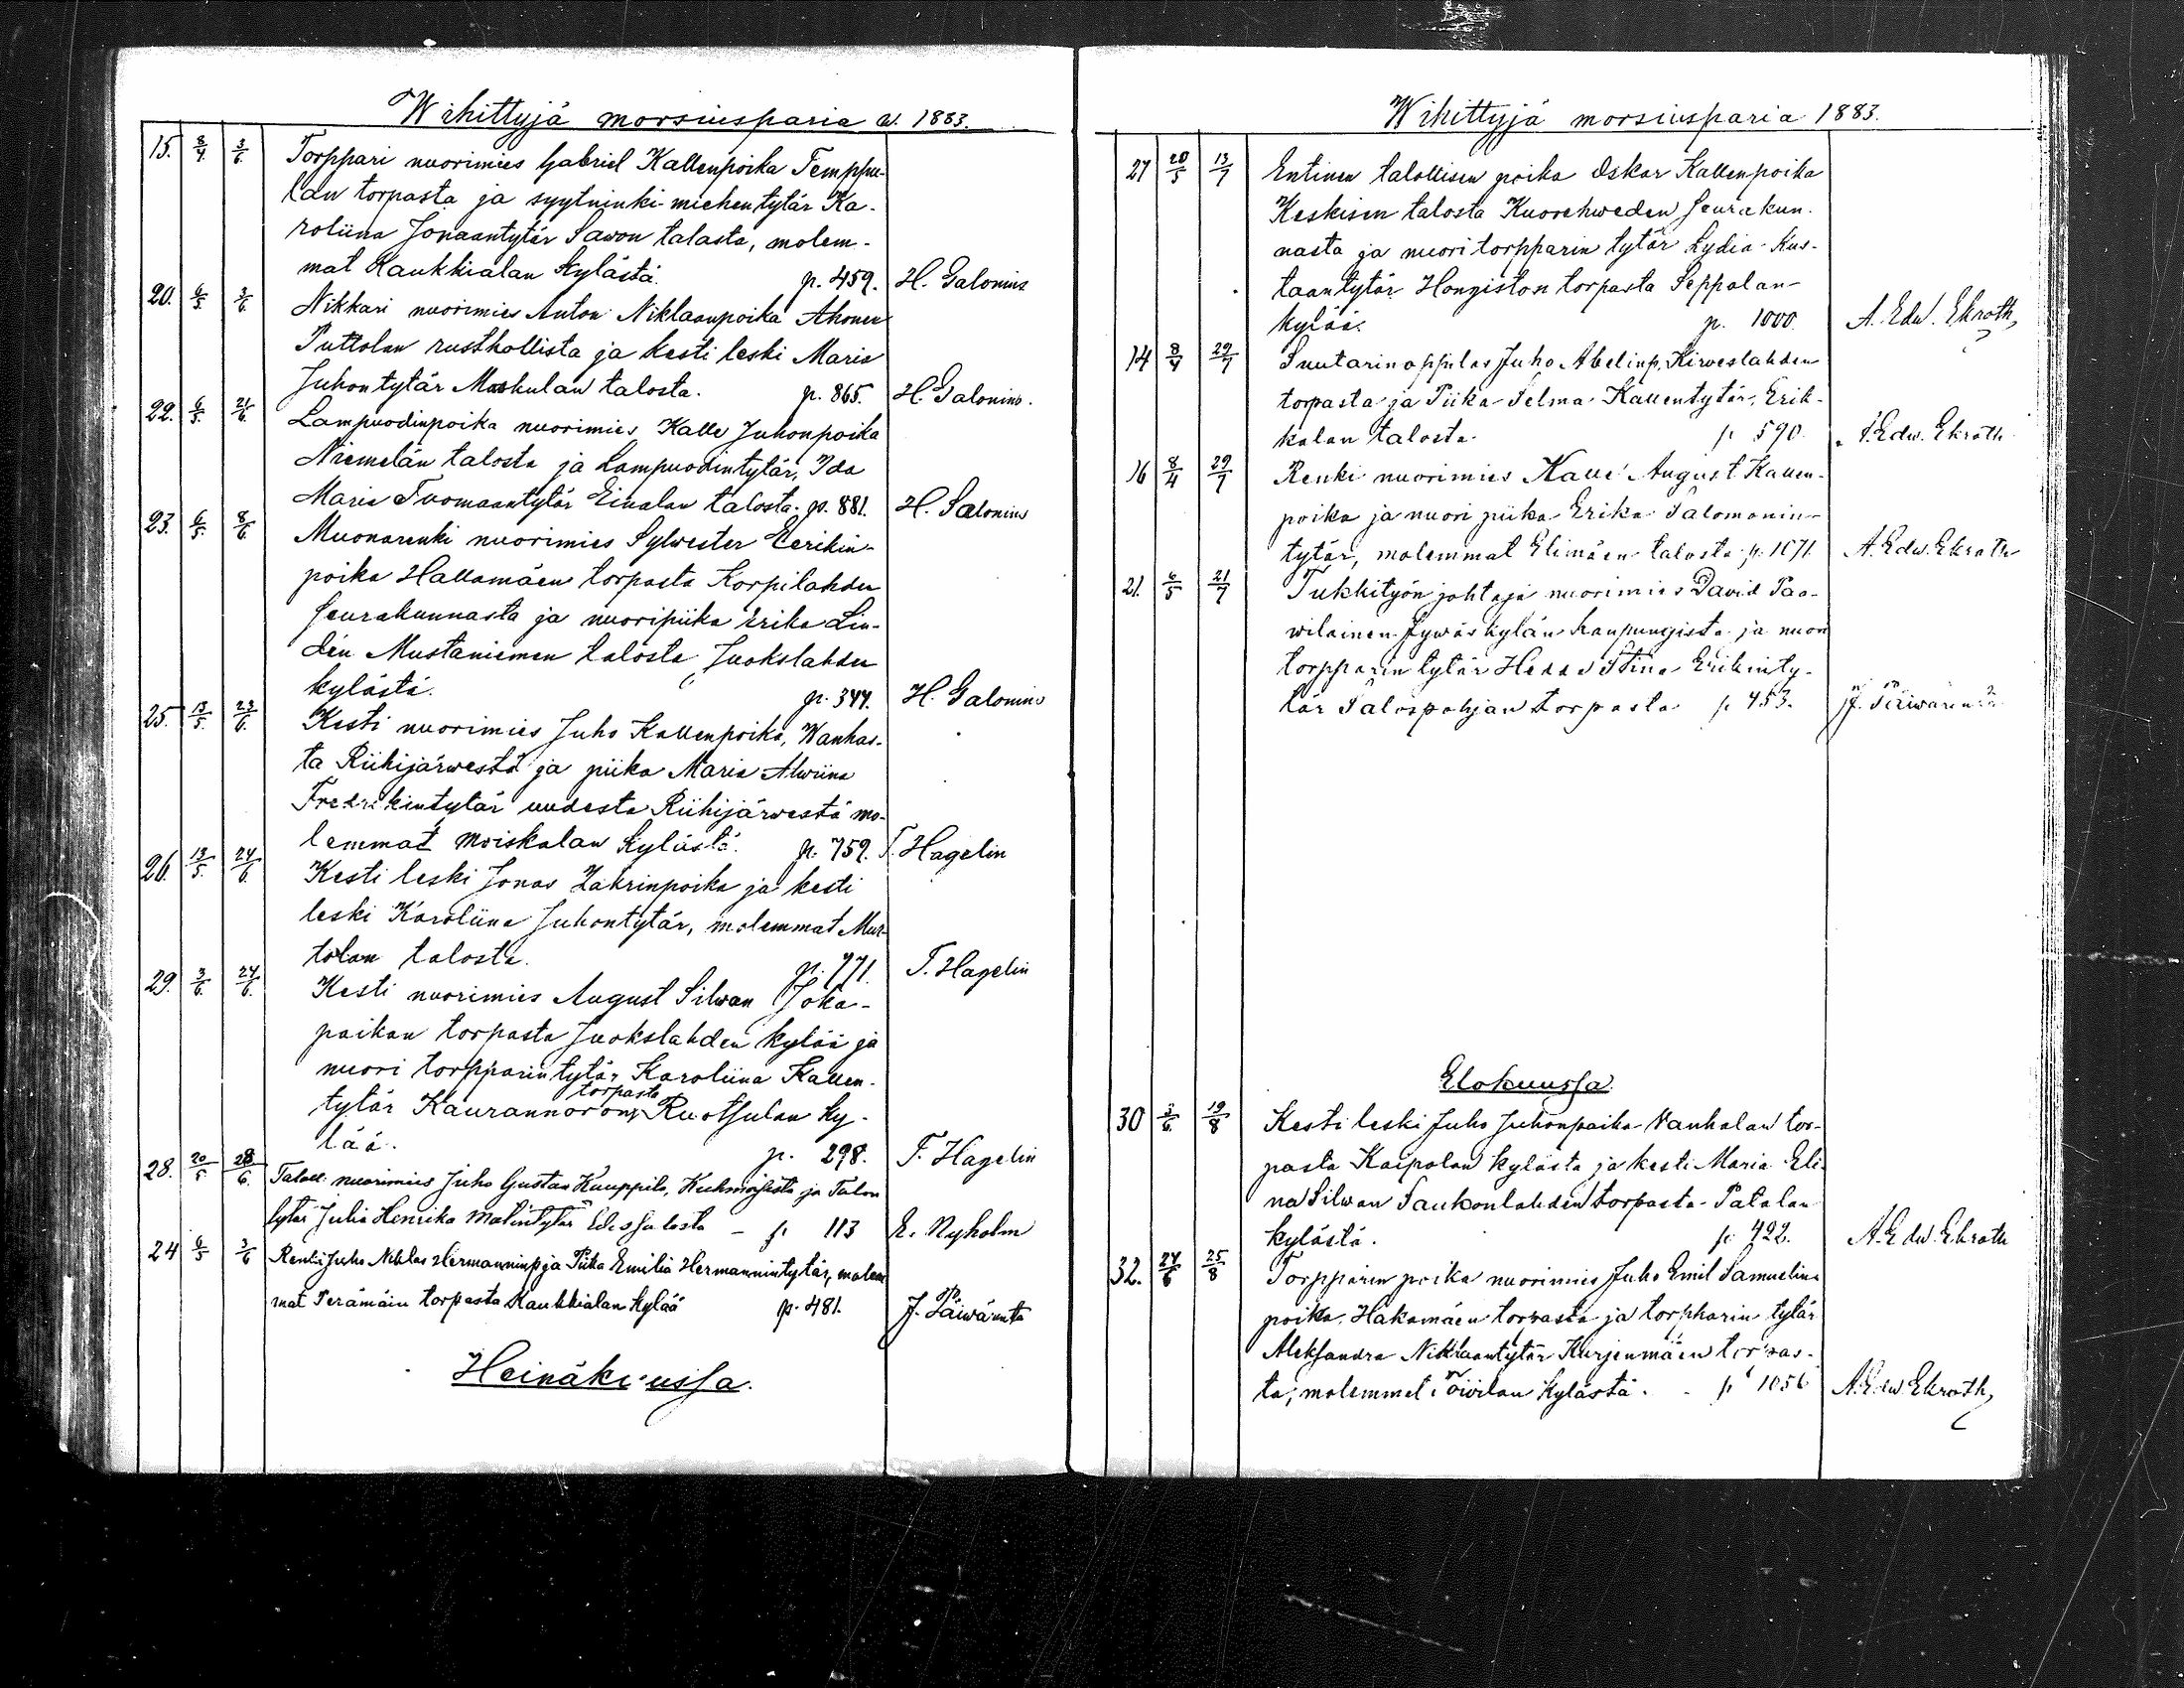 Wihittyjä morsiusparia v. 1883.
15. 8/4. 3/6. Torppari nuorimies Gabriel Kallenpoika Temppu-
lan torpasta ja syytninki-miehen tytär Ka-
roliina Jonaantytär Sawon talosta, molem-
mat Kaukkialan kylästä. p. 459. H. Salonius
20. 6/5. 3/6. Nikkari nuorimies Anton Niklaanpoika Ahonen
Puttolan rusthollista ja kesti leski Maria
Juhontytär Maskulan talosta. p. 865. H. Salonius.
22. 6/5. 21/6. Lampuodinpoika nuorimies Kalle Juhonpoika
Niemelän talosta ja Lampuodintytär, Ida
Maria Tuomaantytär Einalan talosta. p. 881. H. Salonius
23. 6/5. 8/6. Muonarenki nuorimies Sylwester Eerikin-
poika Hallamäen torpasta Korpilahden
seurakunnasta ja nuoripiika Erika Lin-
dén Mustaniemen talosta Juokslahden
kylästä. p. 344. H. Salonius
25. 13/5. 23/6. Kesti nuorimies Juho Kallenpoika, Wanhas-
ta Riihijärwestä ja piika Maria Alwiina
Fredrikintytär uudesta Riihijärwestä mo-
lemmat Moiskalan kylästä. p. 759. T. Hagelin
26. 13/5. 24/6. Kesti leski Jonas Zakrinpoika ja kesti
leski Karoliina Juhontytär, molemmat Mur-
tolan talosta. p. 771. T. Hagelin
29. 3/6. 24/6. Kesti nuorimies August Silwan Joka-
paikan torpasta Juokslahden kylää ja
nuori torpparintytär Karoliina Kallen-
tytär Kaurannoron torpasta Ruotsulan ky-
lää. p. 298. T. Hagelin
28. 20/5 28/6. Taloll. nuorimies Juho Gustaa Kauppila, Kuhmoisista ja Talon
tytär Julia Henrika Matintytär Edessalosta - p. 113 E. Nyholm
24 6/5 3/6 Renki Juho Niklas Hermanninp. ja Piika Emilia Hermannintytär, molem
mat Perämäen torpasta Kaukkialan kylää p. 481. J. Päiwärinta
Heinäkuussa.
Wihittyjä morsiusparia 1883.
27 20/5 13/7 Entinen talollisen poika Oskar Kallenpoika
Keskisen talosta Kuorehweden seurakun-
nasta ja nuori torpparin tytär Lydia Kus-
taantytär Hongiston torpasta Seppolan-
kylää. p. 1000. A. Edw. Ekroth
14 8/4 29/7 Suutarinoppilas Juho Abelinp. Kirweslahden
torpasta ja Piika Selma Kallentytär, Erik-
kalan talosta. p. 590. A. Edw. Ekroth
16 8/4 29/7 Renki nuorimies Kalle August Kallen-
poika ja nuori piika Erika Salomonin-
tytär, molemmat Elimäen talosta p. 1071. A. Edw. Ekroth
21. 6/5 21/7 Tukkityön johtaja nuorimies David Paa-
wilainen Jywäskylän kaupungista ja nuori
torpparin tytär Hedda Stina Erikinty-
tär Salospohjan torpasta p. 453. J. Päiwärinta
Elokuussa.
30 3/6. 19/8 Kesti leski Juho Juhonpoika Vanhalan tor-
pasta Kaipolan kylästä ja kesti Maria Eli-
na Silwan Saukonlahden torpasta Patalan
kylästä. p. 422. A. Edw. Ekroth
32. 24/6 25/8 Torpparin poika nuorimies Juho Emil Samuelin
poika, Hakamäen torpasta ja torpparin tytär
Aleksandra Niklaantytär Kurjenmäen torpas-
ta, molemmat kylästä. p. 1056 A. Edw. Ekroth